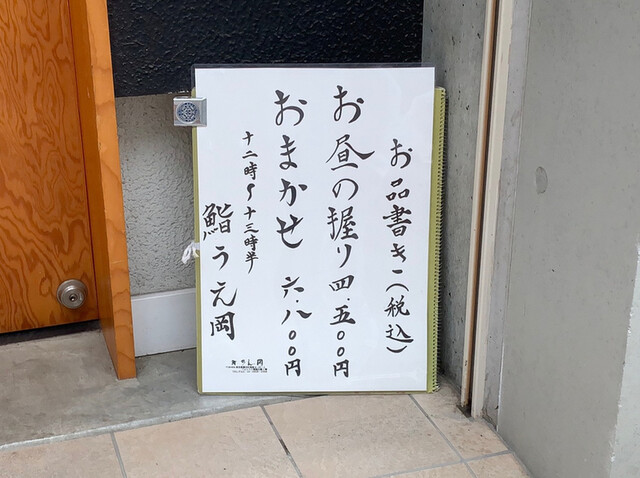 お品書き(税込)
お昼の握り四.五〇〇円
おまかせ 六.八〇〇円
十二時〜十三時半
鮨うえ岡